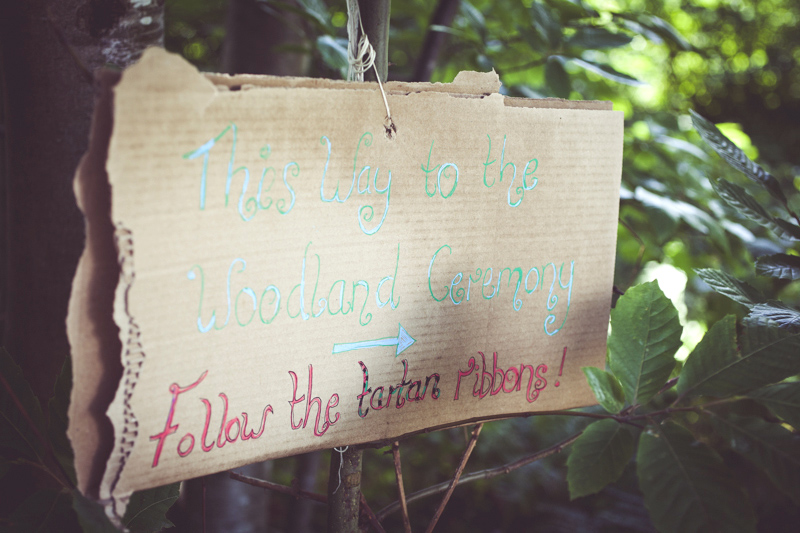 This Way to the
Woodland Ceremony
Follow the tartan ribbons!